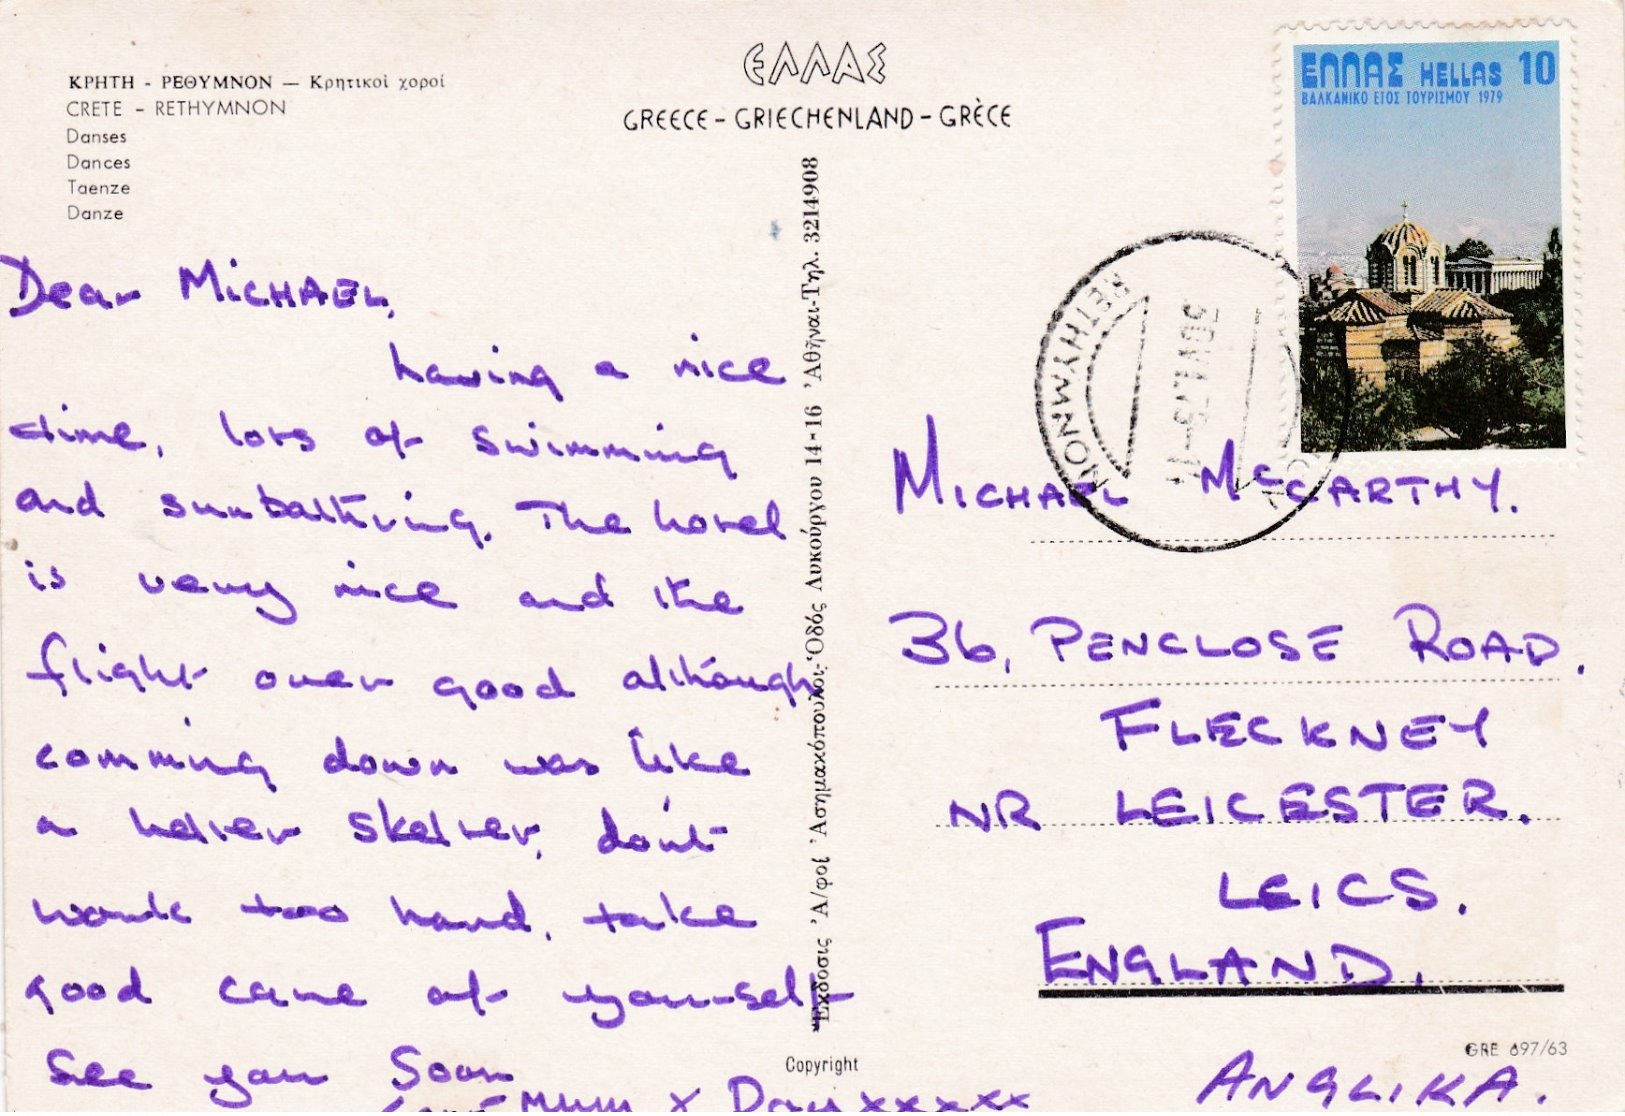 ΚΡΗΤΗ - ΡΕΘΥΜΝΟΝ — Κρητικοὶ χοροί
CRETE - RETHYMNON
Danses
Dances
Taenze
Danze
ΕΛΛΑΣ
GREECE - GRIECHENLAND - GRÈCE
ΕΛΛΑΣ HELLAS 10
ΒΑΛΚΑΝΙΚΟ ΕΤΟΣ ΤΟΥΡΙΣΜΟΥ 1979
RETHYMNON
Dear MICHAEL,
having a nice
time, lots of swimming
and sunbathing. The hotel
is very nice and the
flight over good although
comming down was like
a helter skelter, don't
work too hard, take
good care of your-self
See you Soon
Love Mum X Dad xxxxx
Ἔκδοσις Ἀ/φοὶ Ἀσημακόπουλοι, Ὁδός Λυκούργου 14-16 Ἀθῆναι-Τηλ. 3214908
Copyright
MICHAEL McCARTHY.
36, PENCLOSE ROAD.
FLECKNEY
NR LEICESTER.
LEICS.
ENGLAND.
GRE 697/63
ANGLIKA.